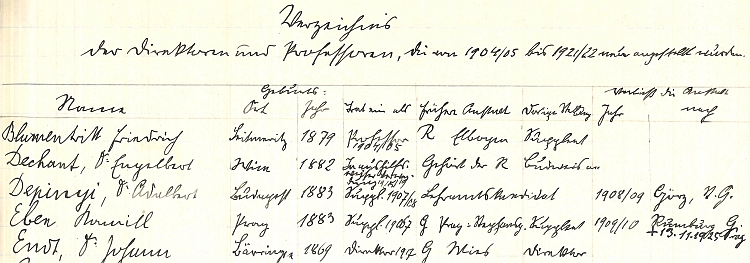 Verzeichnis
der Direktoren und Professoren, die von 1904/05 bis 1921/22 neu angestellt wurden.
Geburts- Verließ die Anstalt
Name Ort Jahr Trat ein als Frühere Anstalt Vorige Stellung Jahr nach
Blumentritt Friedrich Leitmeritz 1879 Professor 1904/05 R Elbogen Supplent
Dechant, Dr. Engelbert Wien 1882 Gehört der R Budweis an
Depinyi, Dr. Adalbert Budapest 1883 Suppl. 1907/08 Lehramtskandidat 1908/09 Görz, U. G.
Eben Kamill Prag 1883 Suppl. G Prag-Stephansg. Supplent 1909/10 Rumburg G
+ 13.11.1925 Prag
Endt, Dr. Johann Bärringen 1869 Direktor G Mies Direktor